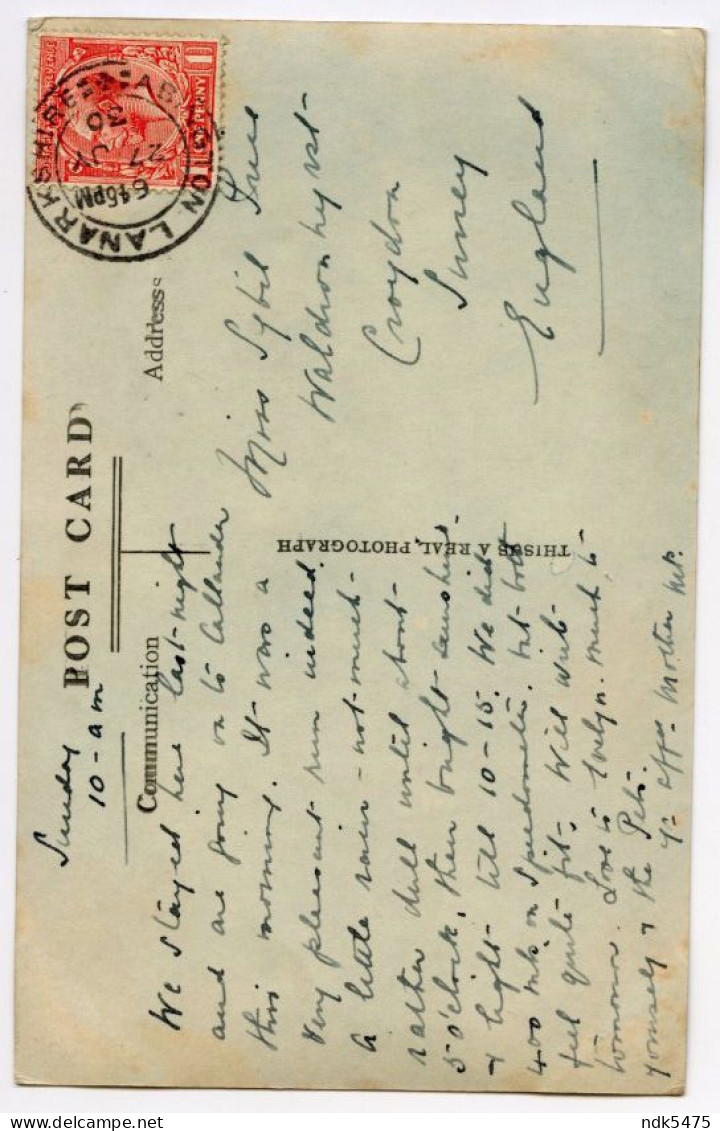 POST CARD
Communication
Address
THIS IS A REAL PHOTOGRAPH
Sunday
10-am
We stayed here last night
and are going on to Callander
this morning. It was a
very pleasant run indeed.
A little rain - not much -
rather dull until about
5 o'clock, then bright sunshine
& light till 10-15. We did
400 mls on speedometer, but both
feel quite fit. Will write
tomorrow. Love to Evelyn. much to
yourself & the Pets.
Yr affec. Mother
Miss Sybil
Waldronhyrst
Croydon
Surrey
England
ABINGTON LANARKSHIRE
645PM
27 JY
30
REVENUE
ONE PENNY
1
ndk5475